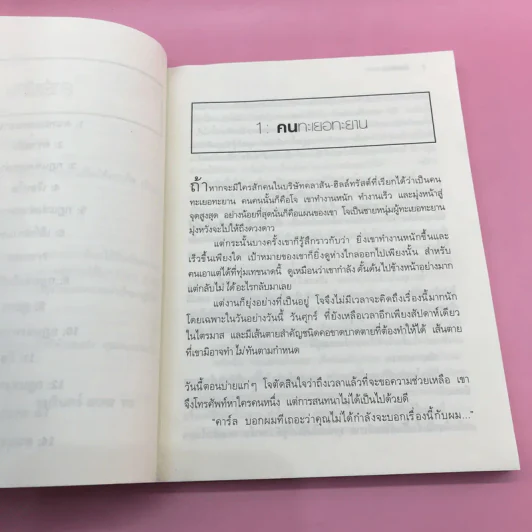 1: คนทะเยอทะยาน
ถ้าหากจะมีใครสักคนในบริษัทคลาสัน-ฮิลล์ทรัสต์ที่เรียกได้ว่าเป็นคน
ทะเยอทะยาน คนคนนั้นก็คือโจ เขาทำงานหนัก ทำงานเร็ว และมุ่งหน้าสู่
จุดสูงสุด อย่างน้อยที่สุดนั่นก็คือแผนของเขา โจเป็นชายหนุ่มผู้ทะเยอทะยาน
มุ่งหวังจะไปให้ถึงดวงดาว
แต่กระนั้นบางครั้งเขาก็รู้สึกราวกับว่า ยิ่งเขาทำงานหนักขึ้นและ
เร็วขึ้นเพียงใด เป้าหมายของเขาก็ยิ่งดูห่างไกลออกไปเพียงนั้น สำหรับ
คนเอาแต่ได้ที่ทุ่มเทขนาดนี้ ดูเหมือนว่าเขากำลังดั้นด้นไปข้างหน้าอย่างมาก
แต่กลับไม่ได้อะไรกลับมาเลย
แต่งานก็ยุ่งอย่างที่เป็นอยู่ โจจึงไม่มีเวลาจะคิดถึงเรื่องนี้มากนัก
โดยเฉพาะในวันอย่างวันนี้ วันศุกร์ ที่ยังเหลือเวลาอีกเพียงสัปดาห์เดียว
ในไตรมาส และมีเส้นตายสำคัญชนิดคอขาดบาดตายที่ต้องทำให้ได้ เส้นตาย
ที่เขามิอาจทำไม่ทันตามกำหนด
วันนี้ตอนบ่ายแก่ๆ โจตัดสินใจว่าถึงเวลาแล้วที่จะขอความช่วยเหลือ เขา
จึงโทรศัพท์หาใครคนหนึ่ง แต่การสนทนาไม่ได้เป็นไปด้วยดี
“คาร์ล บอกผมทีเถอะว่าคุณไม่ได้กำลังจะบอกเรื่องนี้กับผม...”